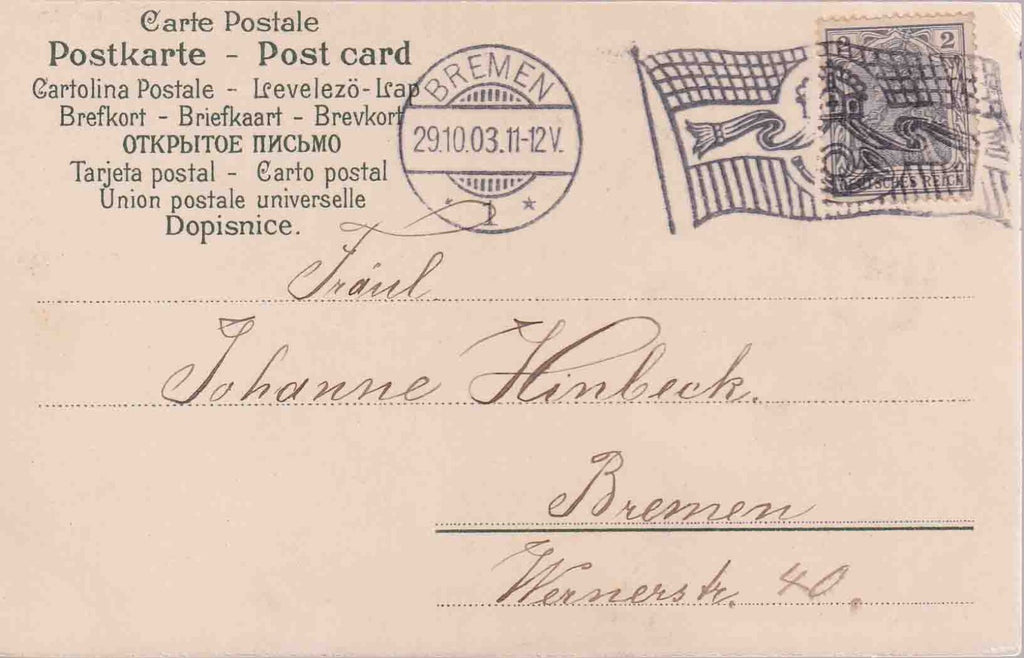 Carte Postale
Postkarte - Post card
Cartolina Postale - Levelezö-Lap
Brefkort - Briefkaart - Brevkort
ОТКРЫТОЕ ПИСЬМО
Tarjeta postal - Carto postal
Union postale universelle
Dopisnice.
BREMEN
29.10.03.11-12V.
* 2 *
2 2
DEUTSCHES REICH
Fräul.
Johanne Hinbeck.
Bremen
Wernerstr. 40.